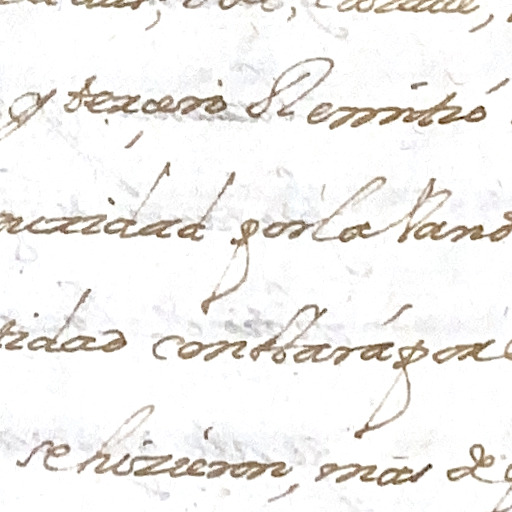 y tercero Remitió
uridad por la Vand
tidad constará por
se hizieron, mas de